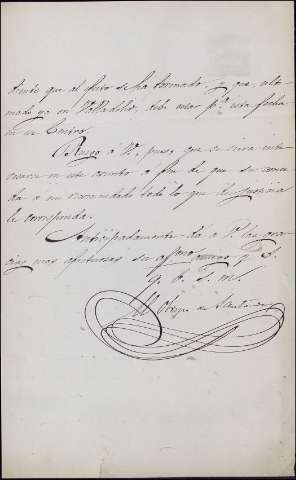 diente que al efecto se ha formado, y que, ulti-
mado ya en Valladolid, debe estar p.r esta fecha
en ese Centro.
Ruego á V., pues, que se sirva inte-
resarse en este asunto á fin de que se conce-
da á mi recomendado todo lo que de justicia
le corresponda.
Anticipadamente da á V. las gra-
cias mas afectuosas su affmo. amigo y S. S.
q. b. s. m.
El Obispo de Santander